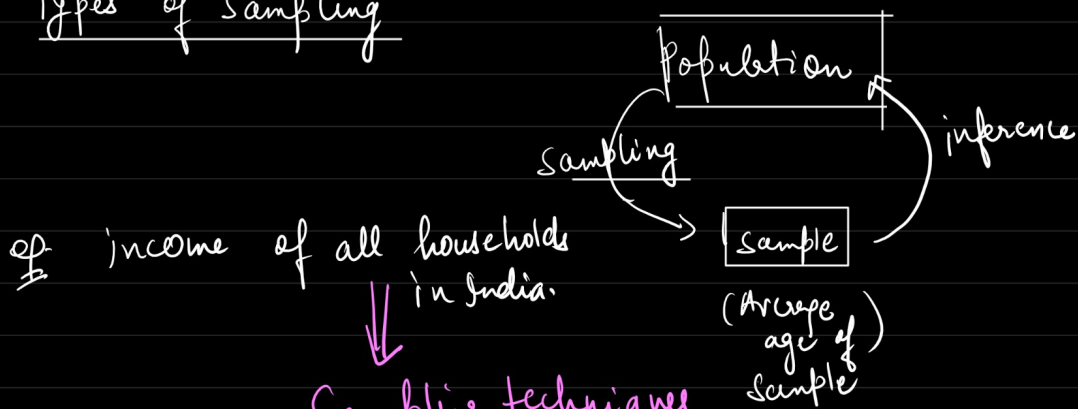 Types of Sampling
Population
Sampling
inference
eg income of all households
in India.
Sample
(Average
age of)
Sample
Sampling techniques